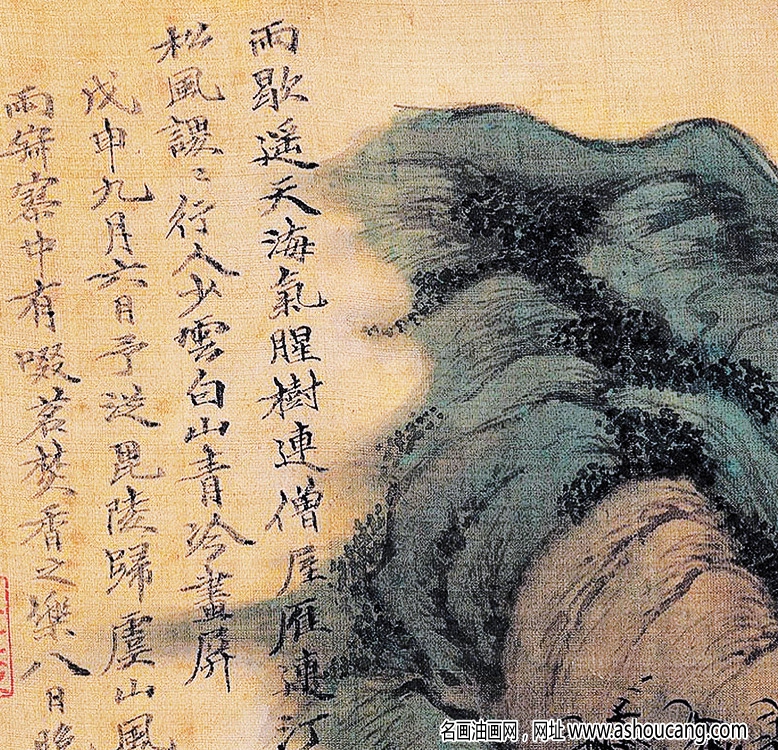 雨歇遥天海氣腥樹連僧屋雁連汀
松風謖〻行人少雲白山青冷畫屏
戊申九月六日予從毘陵歸虞山風
雨舟窓中有啜茗焚香之樂八日晚
名画油画网，网址 www.ashoucang.com